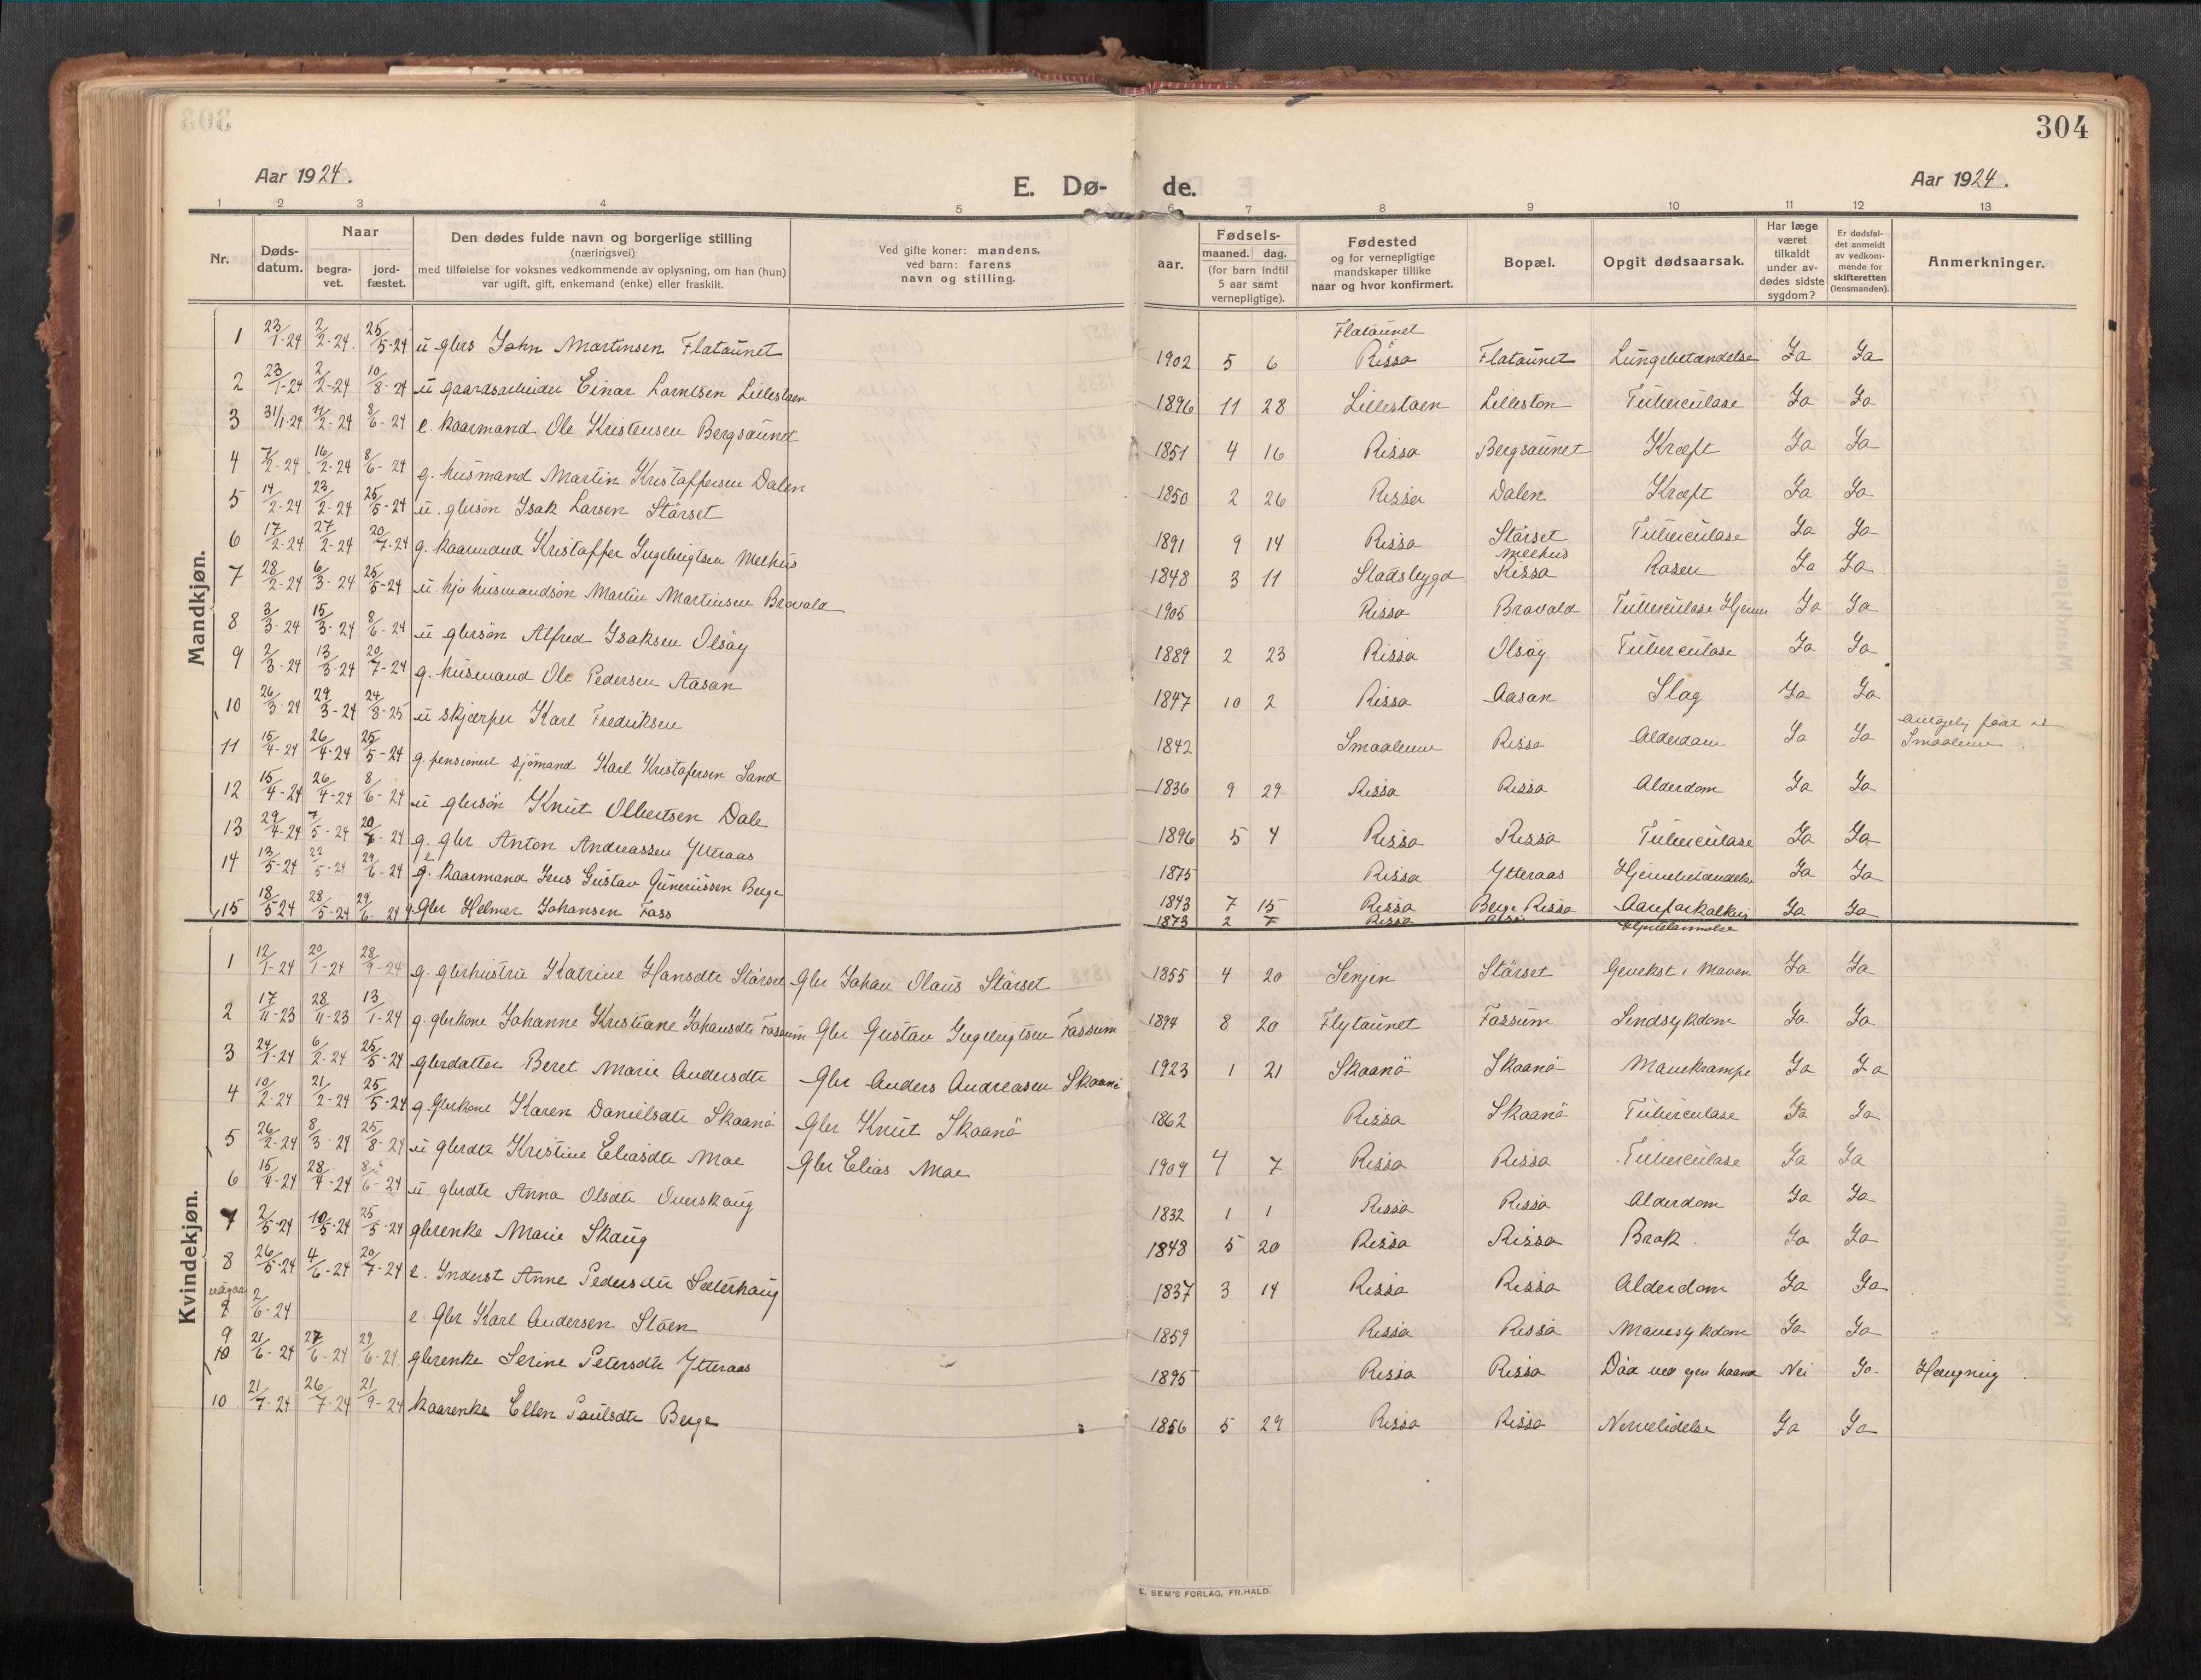 304
Aar 1924.
E. Dø- de.
Aar 1924.
1 2 3 4 5 6 7 8 9 10 11 12 13
Nr.
Døds-datum.
Naar
begra-vet.
jord-fæstet.
Den dødes fulde navn og borgerlige stilling
(næringsvei)
med tilføielse for voksnes vedkommende av oplysning, om han (hun)
var ugift, gift, enkemand (enke) eller fraskilt.
Ved gifte koner: mandens,
ved barn: farens
navn og stilling.
Fødsels-
aar.
maaned. dag.
(for barn indtil
5 aar samt
vernepligtige).
Fødested
og for vernepligtige
mandskaper tillike
naar og hvor konfirmert.
Bopæl.
Opgit dødsaarsak.
Har læge
været
tilkaldt
under av-
dødes sidste
sygdom?
Er dødsfal-
det anmeldt
av vedkom-
mende for
skifteretten
(lensmanden).
Anmerkninger.
Mandkjøn.
1 23/1-24 2/2-24. 25/5-24 u glers John Martinsen Flataunet 1902 5 6 Flataunet Rissa Flataunet Lungebetændelse Ja Ja
2 23/1-24 2/2-24 10/8-24 u gaardsarbeider Einar Larntsen Lillestaen 1896 11 28 Lillestaen Lilleston Tuberculase Ja Ja
3 31/1-24 11/2-24 8/6-24 e. kaarmand Ole Kristensen Bergsaunet 1851 4 16 Rissa Bergsaunet Kræft Ja Ja
4 7/2-24 16/2-24 8/6-24 g. husmand Martin Kristaffersen Dalen 1850 2 26 Rissa Dalen Kræft Ja Ja
5 14/2-24 23/2-24 25/5-24 u. glersøn Isak Larsen Størset 1891 9 14 Rissa Størset Tuberculase Ja Ja
6 17/2-24 27/2-24 20/7-24 g. kaarmand Kristaffer Ingebrigtsen Melhus 1848 3 11 Stadsbygd Melhus Rissa Rosen Ja Ja
7 28/2-24 6/3-24 25/5-24 u. hjv husmandsøn Martin Martinsen Bravold 1905 Rissa Bravold Tuberculase Hjerne Ja Ja
8 3/3-24 15/3-24 8/6-24 u glersøn Alfred Isaksen Olsøy 1889 2 23 Rissa Olsøy Tuberculase Ja Ja
9 2/3-24 13/3-24 20/7-24 g. husmand Ole Pedersen Aasan 1847 10 2 Rissa Aasan Slag Ja Ja
10 26/3-24 29/3-24 24/8-25 u skjærper Karl Fredriksen 1842 Smaalene Rissa Alderdam Ja Ja Smaalene
11 15/4-24 26/4-24 25/5-24 g. pensionert sjømand Karl Kristafersen Sand 1836 9 29 Rissa Rissa Alderdom Ja Ja
12 15/4-24 26/4-24 8/6-24 u glersøn Knut Olbertsen Dale 1896 5 4 Rissa Rissa Tuberculase Ja Ja
13 29/4-24 7/5-24 20/7-24 g. gbr Anton Andreassen Ytteraas 1875 Rissa Ytteraas Hjernebetændelse Ja Ja
14 13/5-24 22/5-24 29/6-24 g. e kaarmand Jens Gustav Guneriussen Berge 1843 7 15 Rissa Berge Rissa Aareforkalkn Ja Ja
15 18/5 24 28/5-24 29/6-24 g Gbr Helmer Johansen Foss 1873 2 7 Rissa
Kvindekjøn.
1 12/1-24 20/1-24 28/9-24 g. gbrhustru Katrine Hansdtr Størset Gbr Johan Olaus Størset 1855 4 20 Senjen Størset Gevekst i Maven Ja Ja
2 17/11-23 28/11-23 13/1-24 g. gbrkone Johanne Kristiane Johansdtr Fassum Gbr Gustav Ingebrigtsen Fassum 1894 8 20 Flytaunet Fassum Sindsykdom Ja Ja
3 24/1-24 6/2-24 25/5-24 gbrdatter Beret Marie Andersdtr Gbr Anders Andreasen Skaanø 1923 1 21 Skaanø Skaanø Mavekrampe Ja Ja
4 10/2-24 21/2-24 25/5-24 g. Gbrkone Karen Danielsdtr Skaanø Gbr Knut Skaanø 1862 Rissa Skaanø Tuberculase Ja Ja
5 26/2-24 8/3-24 25/8-24 u gbrdtr Kristine Eliasdtr Moe Gbr Elias Moe 1909 4 7 Rissa Rissa Tuberculase Ja Ja
6 15/4-24 28/4-24 8/6-24 u. gbrdtr Anna Olsdtr Overskaug 1832 1 1 Rissa Rissa Alderdom Ja Ja
7 2/5-24 10/5-24 25/5-24 gbrenke Marie Skaug 1848 5 20 Rissa Rissa Brok Ja Ja
8 26/5-24 4/6-24 20/7-24 e. Inderst Anne Pedersdtr Sæterhaug 1837 3 14 Rissa Rissa Alderdom Ja Ja
utgaar 9 2/6-24 e. Gbr Karl Andersen Støen 1859 Rissa Rissa Mavesykdom Ja Ja
9 10 21/6-24 27/6-24 29/6-24. gbrenke Serine Petersdtr Ytteraas 1895 Rissa Rissa Død ved egen haand Nei Ja Hængning
10 21/7-24 26/7-24 21/9-24 kaarenke Ellen Paulsdtr Berge 1856 5 29 Rissa Rissa Nervelidelse Ja Ja
E. SEM'S FORLAG, FR.HALD.